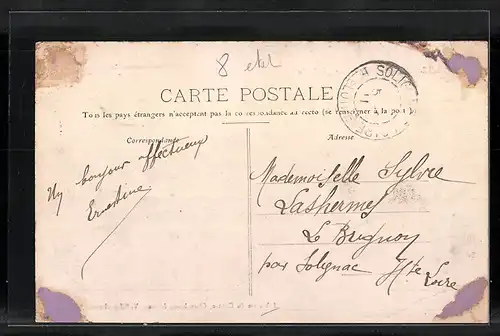 8 eter
CARTE POSTALE
Tous les pays étrangers n'acceptent pas la correspondance au recto (se renseigner à la poste)
Correspondance
Adresse
Un bonjour affectueux
Ernestine
Mademoiselle Sylvie
Lashermes
Le Brignon
par Solignac Hte Loire